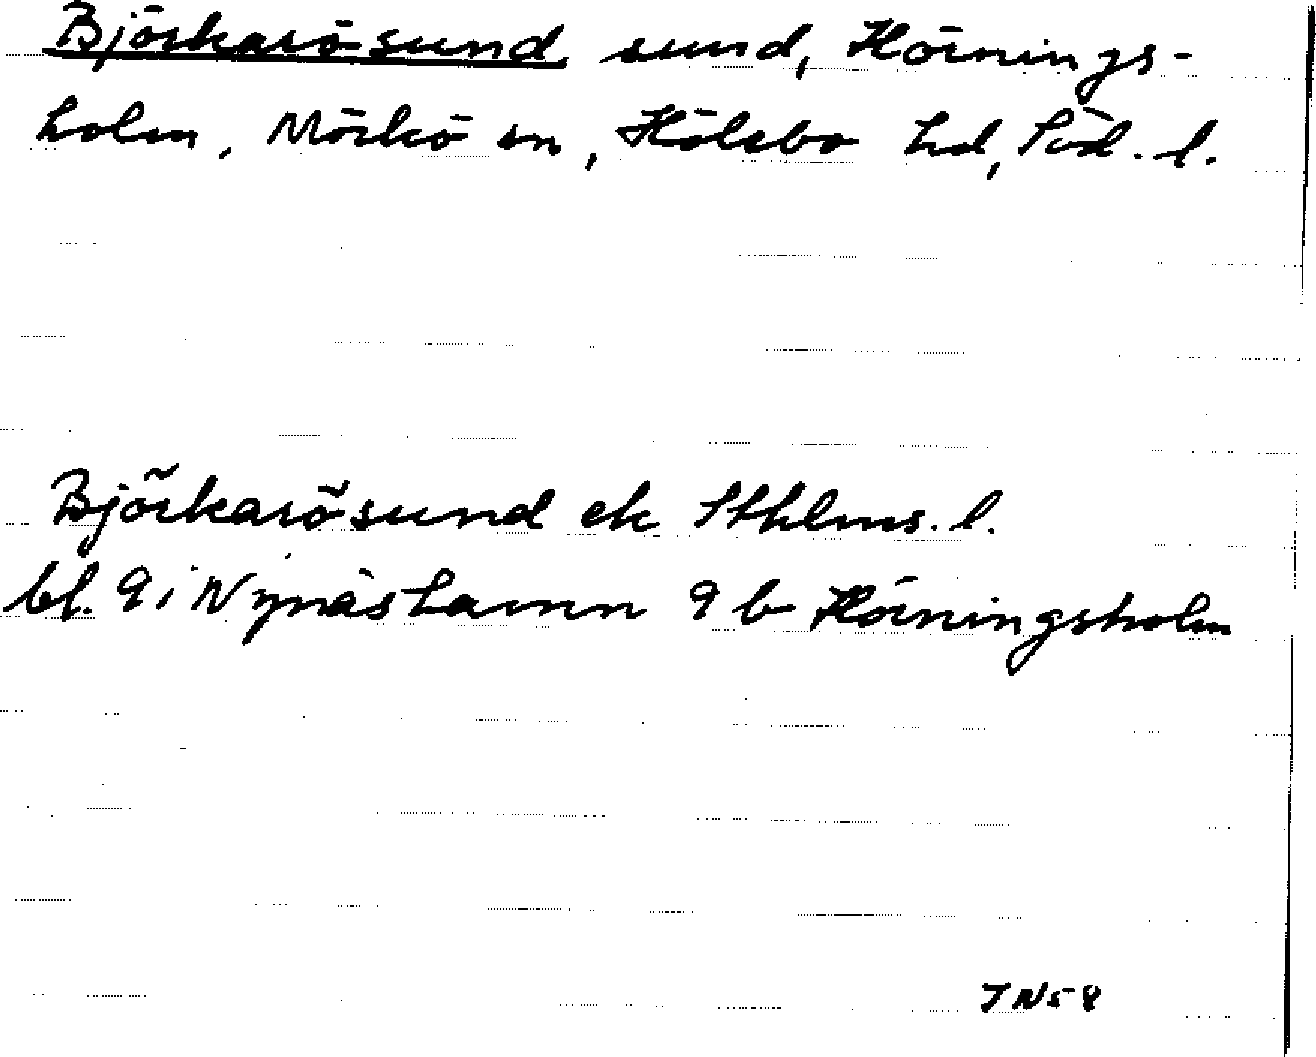 Björkarösund, sund, Hörnings-
holm, Mörkö sn, Hölebo hd, Söd. l.
Björkarösund ek Sthlms. l.
bl. 9 i Nynäshamn 9 b Hörningsholm
JN58